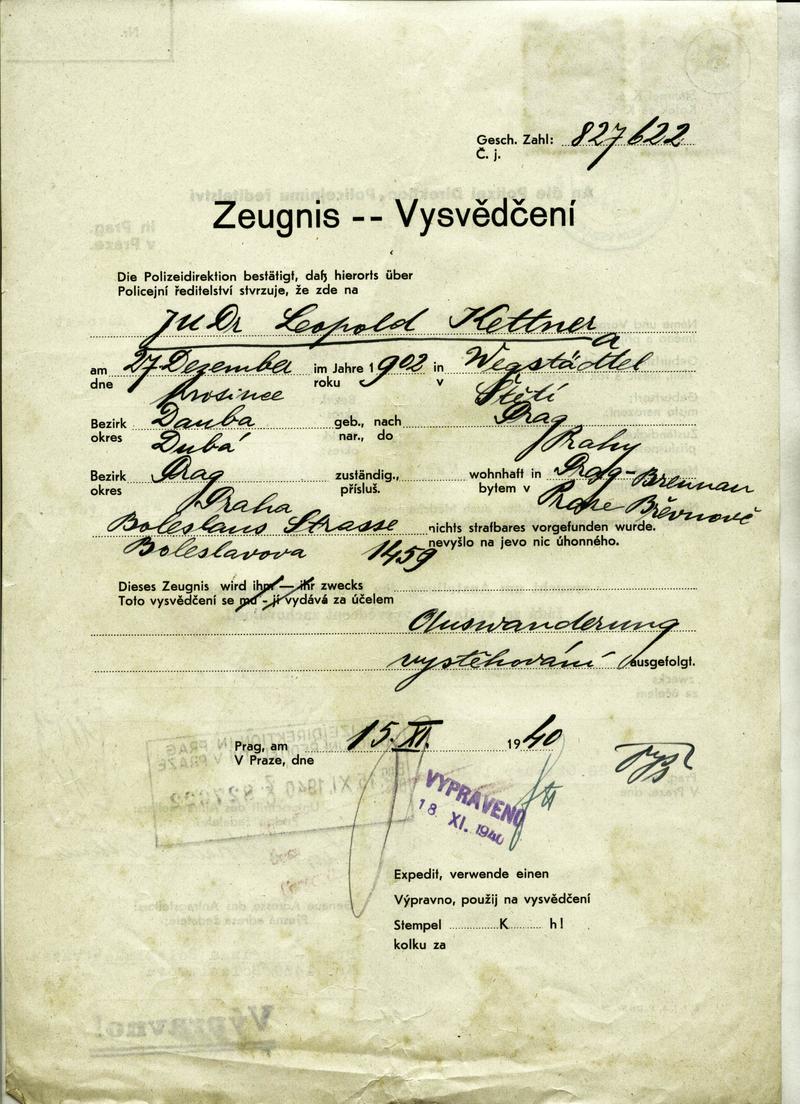 Gesch. Zahl: 827622
Č. j.
Zeugnis -- Vysvědčení
Die Polizeidirektion bestätigt, daß hierorts über
Policejní ředitelství stvrzuje, že zde na
JUDr Leopold Kettner a
am 27 Dezember im Jahre 1902 in Wegstädtel
dne prosince roku v Štětí
Bezirk Dauba geb., nach Prag
okres Dubá nar., do Prahy
Bezirk Prag zuständig., wohnhaft in Prag-Brewnau
okres Praha přísluš. bytem v Praze Břevnově
Boleslaus Strasse nichts strafbares vorgefunden wurde.
Boleslavova 1459 nevyšlo na jevo nic úhonného.
Dieses Zeugnis wird ihm — ihr zwecks
Toto vysvědčení se mu - jí vydává za účelem
Auswanderung
vystěhování ausgefolgt.
Prag, am 15. XI. 1940
V Praze, dne
VYPRAVENO
18 XI. 1940
Expedit, verwende einen
Výpravno, použij na vysvědčení
Stempel ............K........ h!
kolku za
Výpravno!